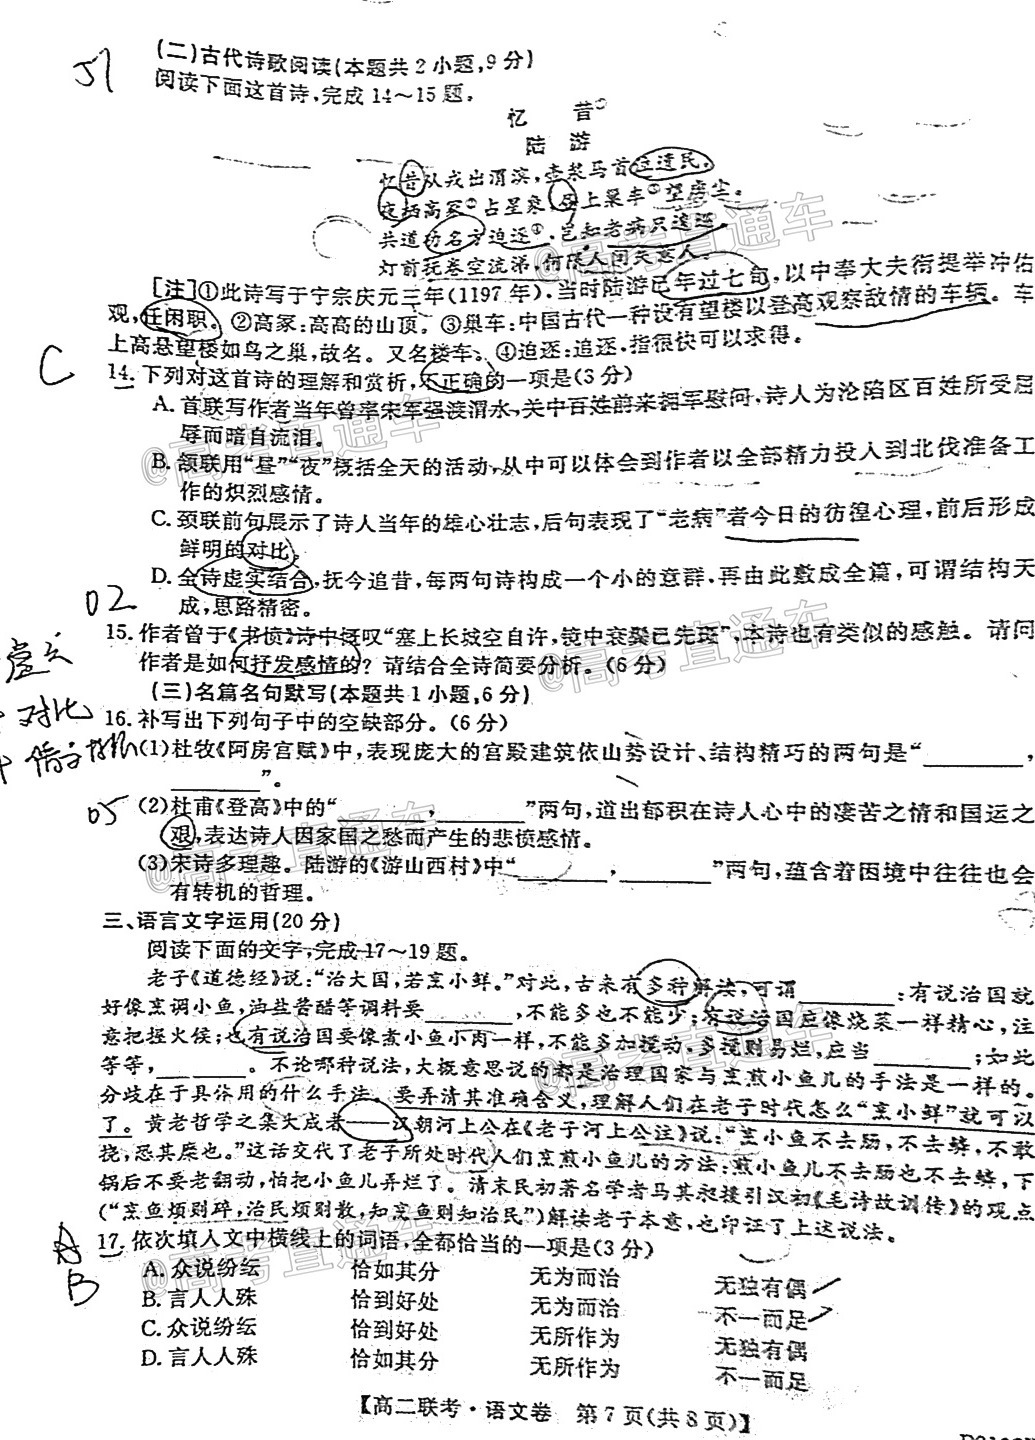 (二)古代诗歌阅读(本题共2小题,9分)
阅读下面这首诗,完成14～15题。
忆 昔①
陆 游
忆昔从戎出渭滨,壶浆马首泣遗民。
夜栖高冢②占星象,昼上巢车③望虏尘。
共道功名方迫逐④,岂知老病只逡巡。
灯前抚卷空流涕,何限人间失意人。
[注]①此诗写于宁宗庆元三年(1197年),当时陆游已年过七旬,以中奉大夫衔提举冲佑
观,任闲职。②高冢:高高的山顶。③巢车:中国古代一种设有望楼以登高观察敌情的车辆。车
上高悬望楼如鸟之巢,故名。又名楼车。④迫逐:追逐,指很快可以求得。
14.下列对这首诗的理解和赏析,不正确的一项是(3分)
A.首联写作者当年曾率宋军强渡渭水,关中百姓前来拥军慰问,诗人为沦陷区百姓所受屈
辱而暗自流泪。
B.颔联用“昼”“夜”概括全天的活动,从中可以体会到作者以全部精力投入到北伐准备工
作的炽烈感情。
C.颈联前句展示了诗人当年的雄心壮志,后句表现了“老病”者今日的彷徨心理,前后形成
鲜明的对比。
D.全诗虚实结合,抚今追昔,每两句诗构成一个小的意群,再由此敷成全篇,可谓结构天
成,思路精密。
15.作者曾于《书愤》诗中慨叹“塞上长城空自许,镜中衰鬓已先斑”,本诗也有类似的感触。请问
作者是如何抒发感情的?请结合全诗简要分析。(6分)
(三)名篇名句默写(本题共1小题,6分)
16.补写出下列句子中的空缺部分。(6分)
(1)杜牧《阿房宫赋》中,表现庞大的宫殿建筑依山势设计、结构精巧的两句是“________,
________”。
(2)杜甫《登高》中的“________,________”两句,道出郁积在诗人心中的凄苦之情和国运之
艰,表达诗人因家国之愁而产生的悲愤感情。
(3)宋诗多理趣。陆游的《游山西村》中“________,________”两句,蕴含着困境中往往也会
有转机的哲理。
三、语言文字运用(20分)
阅读下面的文字,完成17～19题。
老子《道德经》说:“治大国,若烹小鲜。”对此,古来有多种解读,可谓________:有说治国就
好像烹调小鱼,油盐酱醋等调料要________,不能多也不能少;有说治国应像烧菜一样精心,注
意把握火候;也有说治国要像煮小鱼小肉一样,不能多加搅动,多搅则易烂,应当________;如此
等等,________。不论哪种说法,大概意思说的都是治理国家与烹煎小鱼儿的手法是一样的。
分歧在于具体用的什么手法。要弄清其准确含义,理解人们在老子时代怎么“烹小鲜”就可以
了。黄老哲学之集大成者——汉朝河上公在《老子河上公注》说:“烹小鱼不去肠,不去鳞,不敢
挠,恐其糜也。”这话交代了老子所处时代人们烹煎小鱼儿的方法:煎小鱼儿不去肠也不去鳞,下
锅后不要老翻动,怕把小鱼儿弄烂了。清末民初著名学者马其昶援引汉初《毛诗故训传》的观点
(“烹鱼烦则碎,治民烦则散,知烹鱼则知治民”)解读老子本意,也印证了上述说法。
17.依次填入文中横线上的词语,全都恰当的一项是(3分)
A.众说纷纭 恰如其分 无为而治 无独有偶
B.言人人殊 恰到好处 无为而治 不一而足
C.众说纷纭 恰到好处 无所作为 无独有偶
D.言人人殊 恰如其分 无所作为 不一而足
【高二联考·语文卷 第7页(共8页)】
@高考直通车
@高考直通车
@高考直通车
@高考直通车
@高考直通车
@高考直通车
@高考直通车
C
02
对比
05
A
B